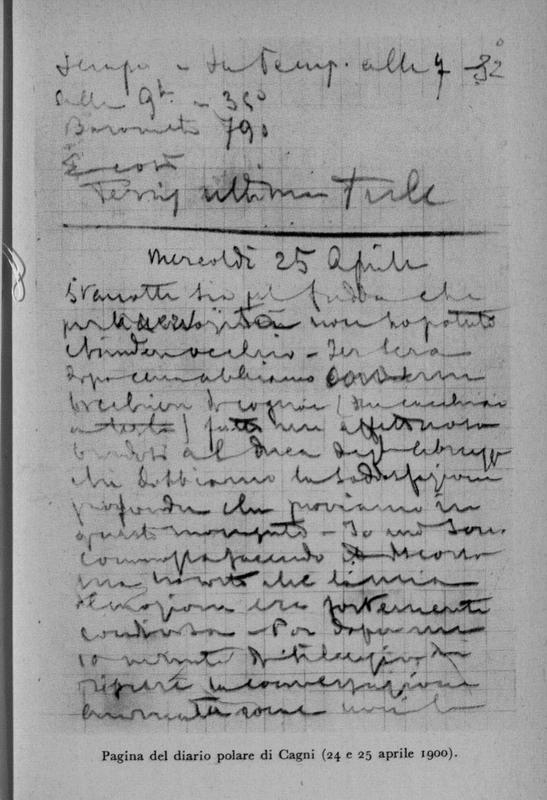 Temp. alle 7 - 32°
alle 9h - 35°
Barometro 790
E così
ultima Tule
Mercoldì 25 Aprile
Stanotte sia pel freddo che
per la nervosità non ho potuto
chiudere occhio - Ier sera
dopo cena abbiamo con un
bicchier di cognac (un cucchiaio
a testa) fatto un affettuoso
brindisi al Duca degli Abruzzi
che dobbiamo la soddisfazione
profonda che proviamo in
questo momento - Io mi sono
commosso facendo il discorso
ma ho visto che la mia
emozione era fortemente
condivisa - Poi dopo un
10 minuti di silenzio, si
riprese la conversazione
animata come
Pagina del diario polare di Cagni (24 e 25 aprile 1900).